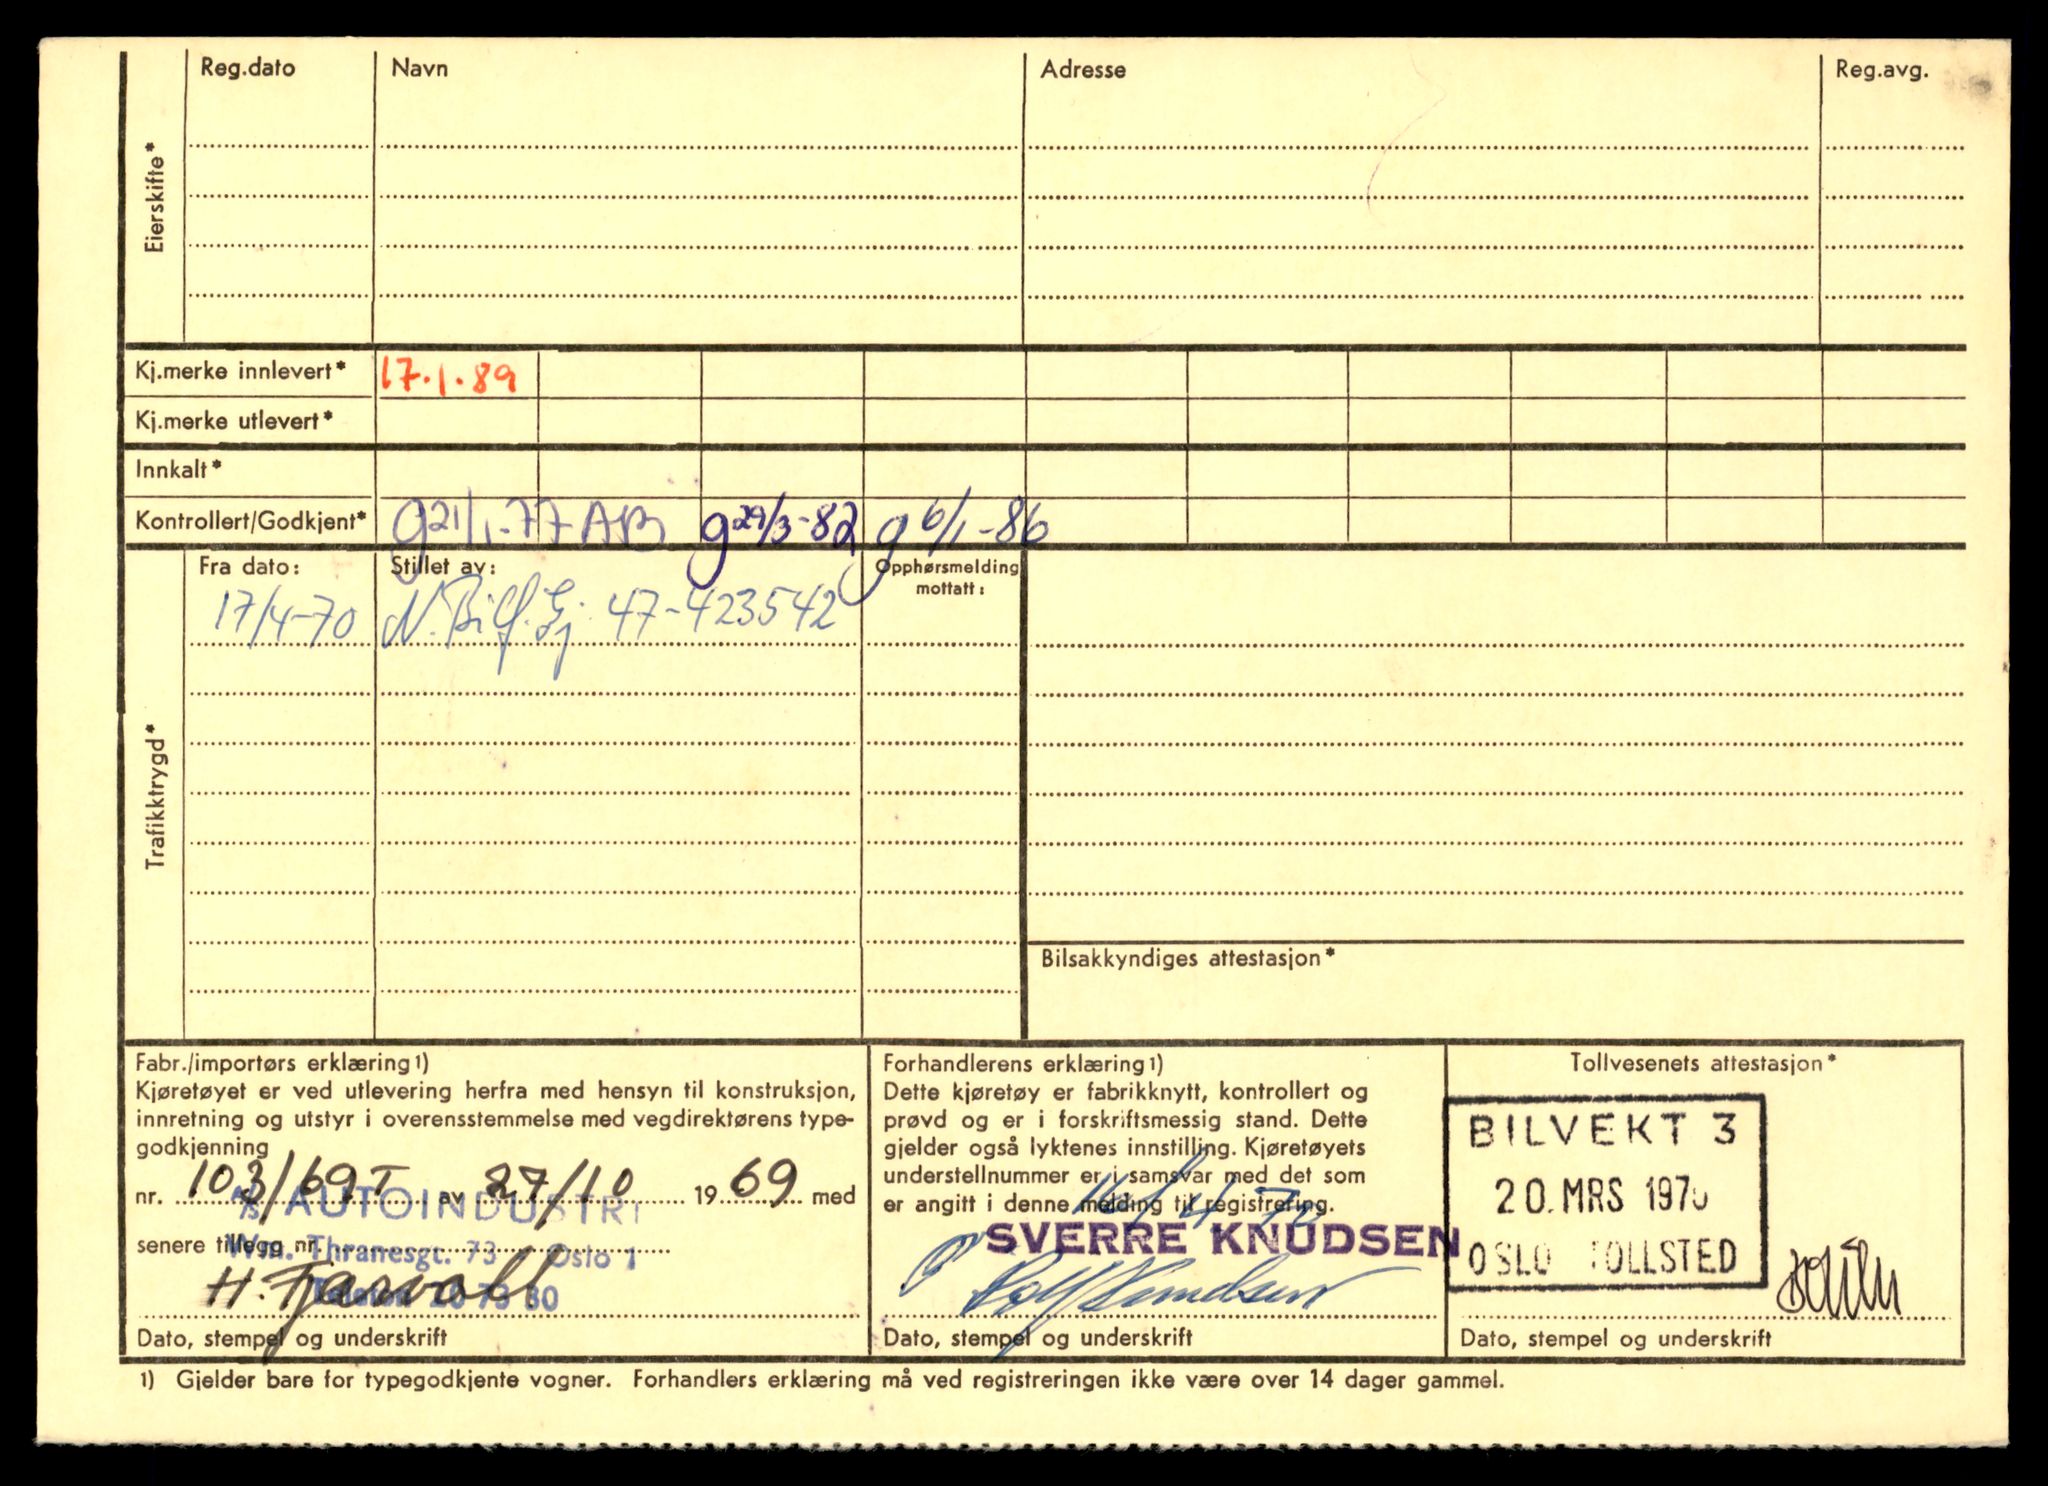 Reg.dato Navn Adresse Reg.avg.
Eierskifte*
Kj.merke innlevert* 17.1.89
Kj.merke utlevert*
Innkalt*
Kontrollert/Godkjent* g21/1-77 AB g29/3-82 g6/1-86
Trafikktrygd*
Fra dato: Stillet av: Opphørsmelding mottatt:
17/4-70 N. Bilf. Gj. 47-423542
Bilsakkyndiges attestasjon*
Fabr./importørs erklæring1)
Kjøretøyet er ved utlevering herfra med hensyn til konstruksjon,
innretning og utstyr i overensstemmelse med vegdirektørens type-
godkjenning
nr. 103/69T av 27/10 1969 med
A/S AUTOINDUSTRI
senere tillegg nr.
Wm. Thranesgt. 73 Oslo 1
Telefon 20 75 80
Dato, stempel og underskrift
Forhandlerens erklæring1)
Dette kjøretøy er fabrikknytt, kontrollert og
prøvd og er i forskriftsmessig stand. Dette
gjelder også lyktenes innstilling. Kjøretøyets
understellnummer er i samsvar med det som
er angitt i denne melding til registrering.
SVERRE KNUDSEN
Rolf Knudsen
Dato, stempel og underskrift
Tollvesenets attestasjon*
BILVEKT 3
20. MRS 1970
OSLO TOLLSTED
Dato, stempel og underskrift
1) Gjelder bare for typegodkjente vogner. Forhandlers erklæring må ved registreringen ikke være over 14 dager gammel.